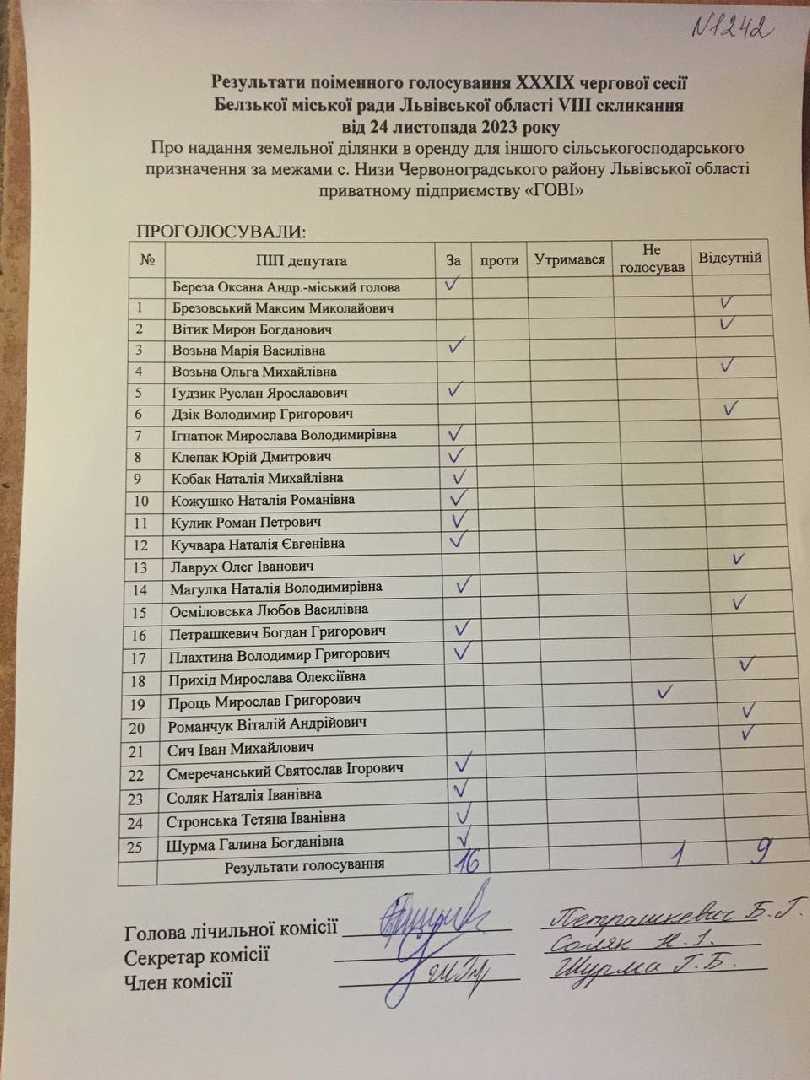 №1242
Результати поіменного голосування XXXIX чергової сесії
Белзької міської ради Львівської області VIII скликання
від 24 листопада 2023 року
Про надання земельної ділянки в оренду для іншого сільськогосподарського
призначення за межами с. Низи Червоноградського району Львівської області
приватному підприємству «ГОВІ»
ПРОГОЛОСУВАЛИ:
№ ПІП депутата За проти Утримався Не голосував Відсутній
Береза Оксана Андр.-міський голова ✓
1 Брезовський Максим Миколайович ✓
2 Вітик Мирон Богданович ✓
3 Возьна Марія Василівна ✓
4 Возьна Ольга Михайлівна ✓
5 Гудзик Руслан Ярославович ✓
6 Дзік Володимир Григорович ✓
7 Ігнатюк Мирослава Володимирівна ✓
8 Клепак Юрій Дмитрович ✓
9 Кобак Наталія Михайлівна ✓
10 Кожушко Наталія Романівна ✓
11 Кулик Роман Петрович ✓
12 Кучвара Наталія Євгенівна ✓
13 Лаврух Олег Іванович ✓
14 Магулка Наталія Володимирівна ✓
15 Осміловська Любов Василівна ✓
16 Петрашкевич Богдан Григорович ✓
17 Плахтина Володимир Григорович ✓
18 Прихід Мирослава Олексіївна ✓
19 Проць Мирослав Григорович ✓
20 Романчук Віталій Андрійович ✓
21 Сич Іван Михайлович ✓
22 Смеречанський Святослав Ігорович ✓
23 Соляк Наталія Іванівна ✓
24 Стронська Тетяна Іванівна ✓
25 Шурма Галина Богданівна ✓
Результати голосування 16 1 9
Голова лічильної комісії Петрашкевич Б.Г.
Секретар комісії Соляк Н.І.
Член комісії Шурма Г.Б.